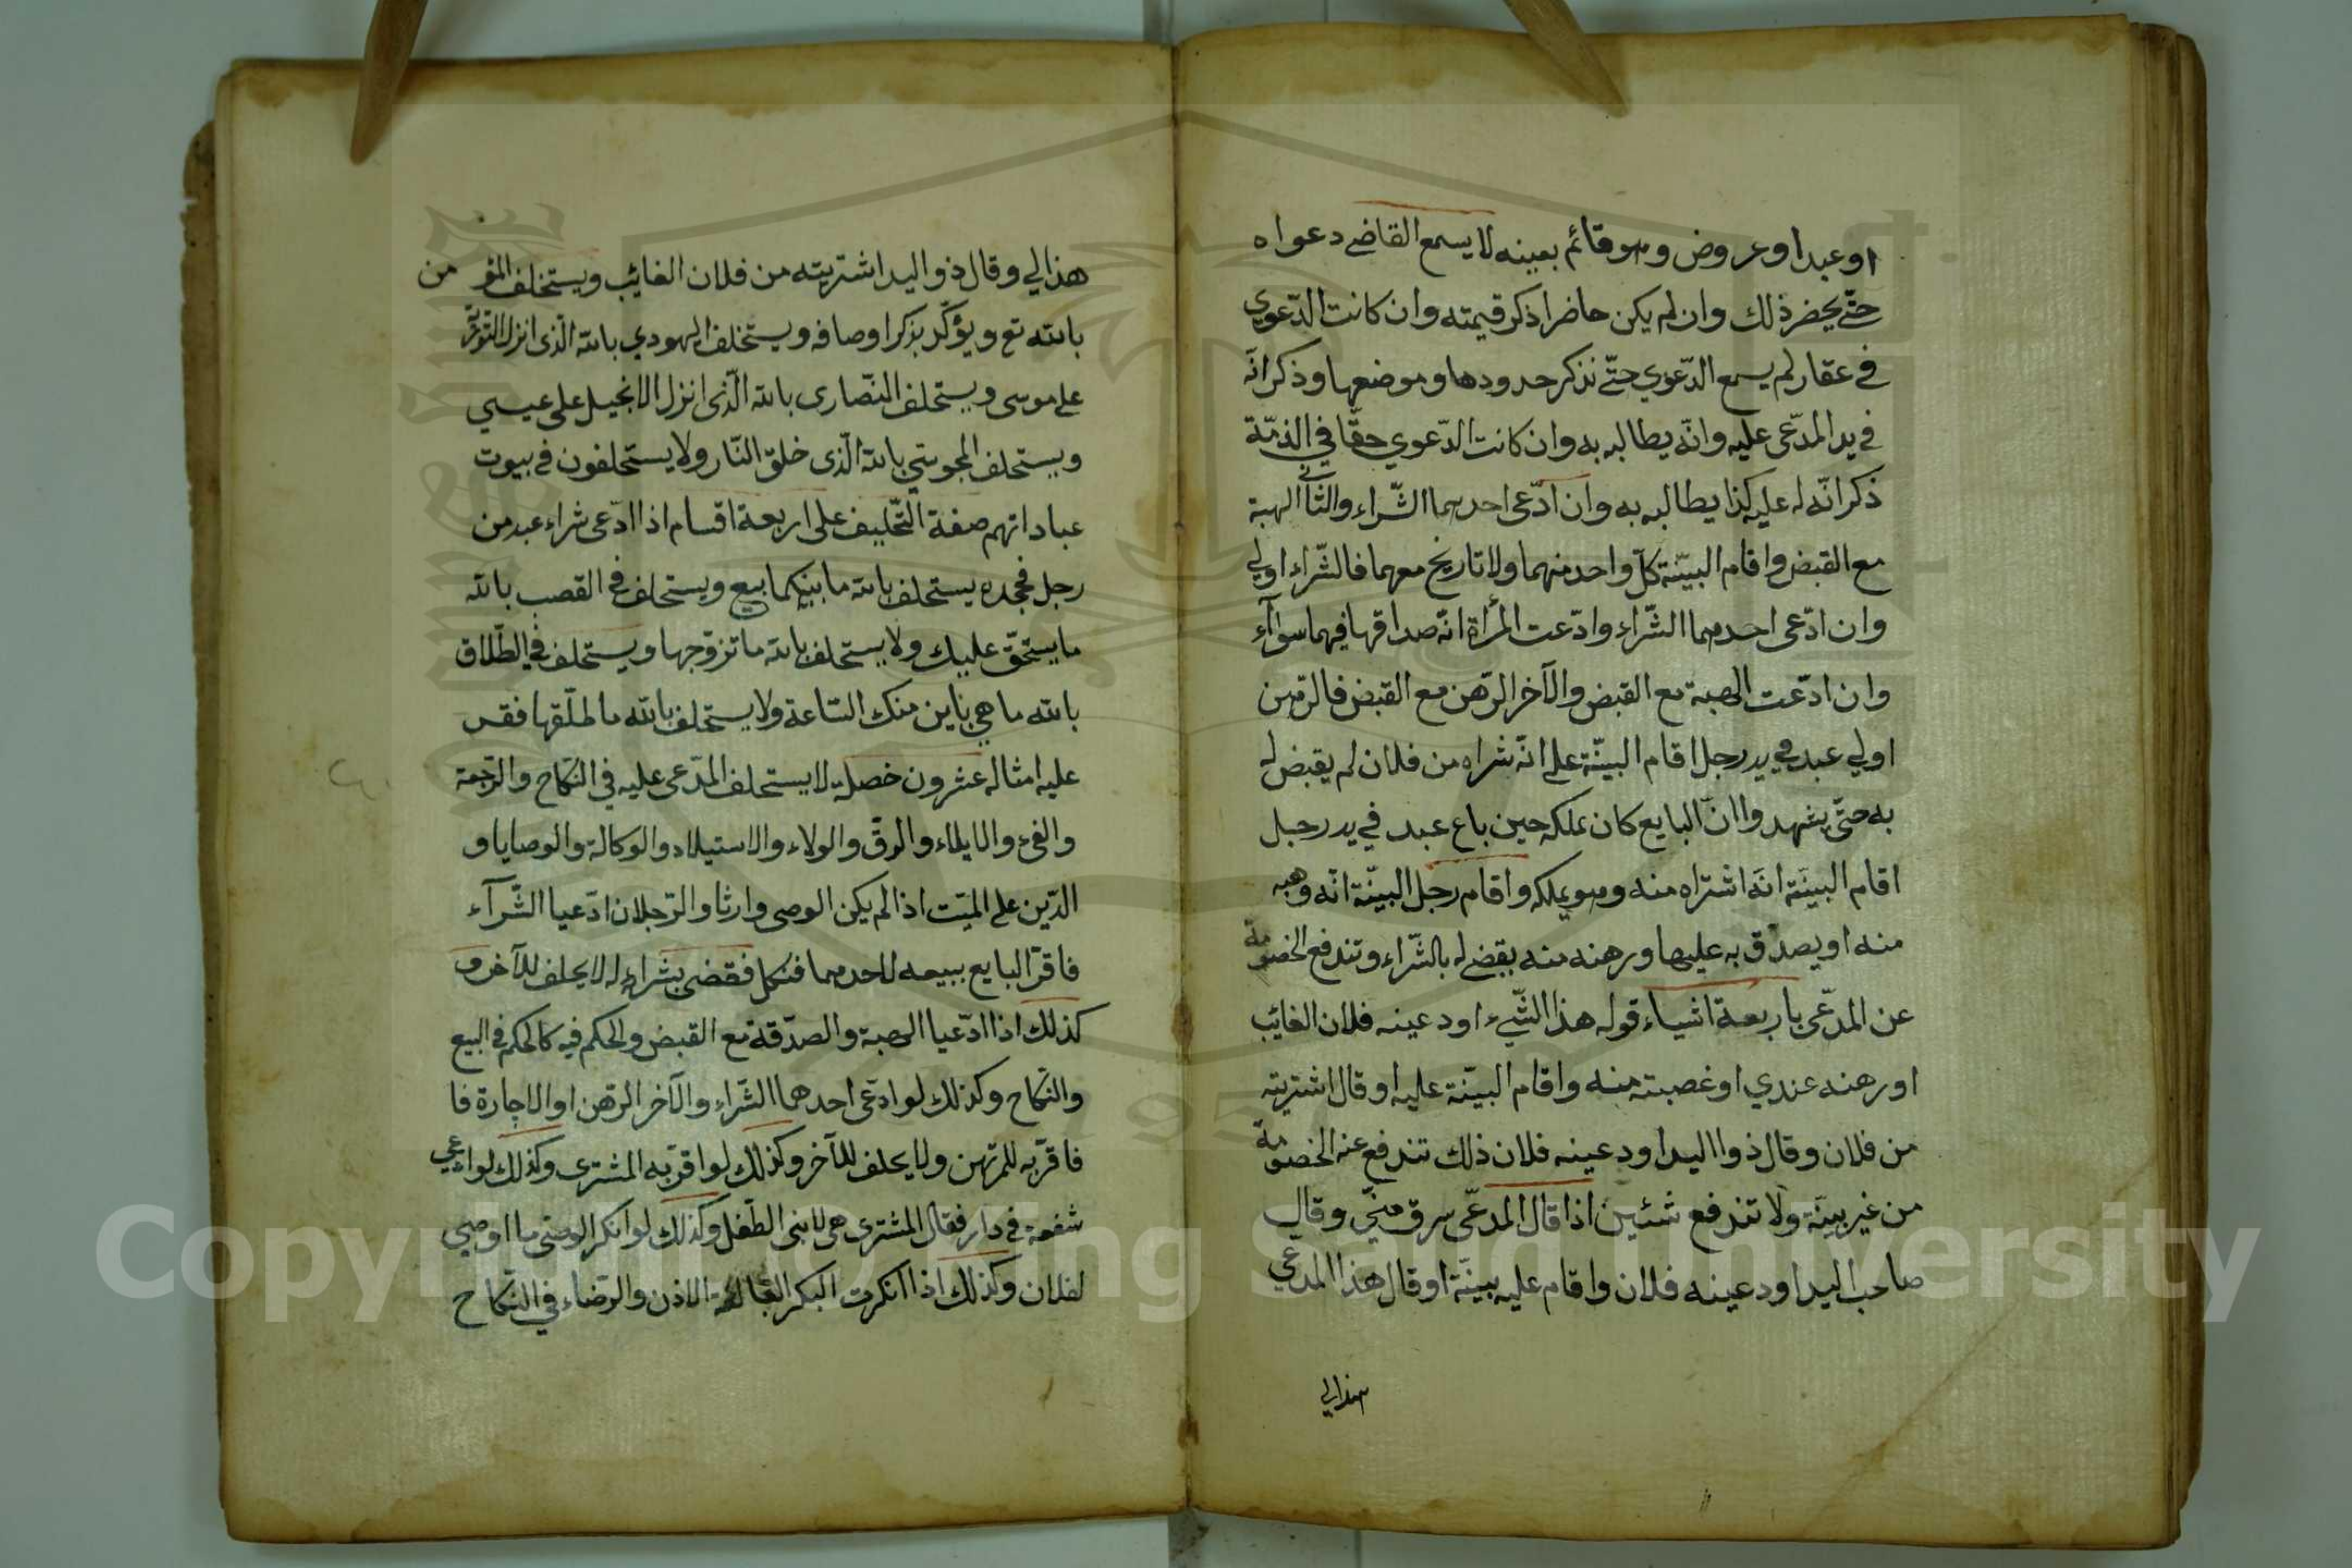 او عبدا او عروض وهو قائم بعينه لا يسمع القاضي دعواه
حتّى يحضر ذلك وان لم يكن حاضرا ذكر قيمته وان كانت الدّعوي
في عقار لم يسمع الدّعوي حتّى نذكر حدودها وموضعها وذكر انّه
في يد المدّعى عليه وانّه يطالبه به وان كانت الدّعوي حقّا في الذمّة
ذكر انّه له عليه كذا يطالبه به وان ادّعى احدهما الشّراء والثّاني الهبة
مع القبض واقام البيّنة كلّ واحد منهما ولا تاريخ معهما فالشّراء اولي
وان ادّعى احدهما الشّراء وادّعت المرأة انّه صداقها فيهما سوآء
وان ادّعت الهبة مع القبض والآخر الرّهن مع القبض فالرّهن
اولي عبد في يد رجل اقام البيّنة على انّه شراه من فلان لم يقبض له
به حتّى يشهدوا انّ البايع كان يملكه حين باع عبد في يد رجل
اقام البيّنة انّه اشتراه منه وهو يملكه واقام رجل البيّنة انّه وهبه
منه او يصدّق به عليها ورهنه منه يقضى له بالشّراء وتندفع الخصومة
عن المدّعى باربعة اشياء قوله هذا الشّيء اودعينه فلان الغائب
او رهنه عندي او غصبته منه واقام البيّنة عليه او قال اشتريته
من فلان وقال ذوا اليد اودعينه فلان ذلك تندفع عنه الخصومة
من غير بيّنة ولا تندفع شئين اذا قال المدّعى سرق منّي وقال
صاحب اليد اودعينه فلان واقام عليه بيّنة او قال هذا المدعي
هذا لي
هذا لي وقال ذو اليد اشتريته من فلان الغائب ويستخلف المؤمن
بالله تع ويؤكّد بذكر اوصافه ويستخلف اليهودي بالله الّذى انزل التّورٰية
على موسى ويستحلف النّصارى بالله الّذى انزل الانجيل على عيسي
ويستحلف المجوسي بالله الّذى خلق النّار ولا يستحلفون في بيوت
عباداتهم صفة التّحليف على اربعة اقسام اذا ادّعى شراء عبد من
رجل فجحده يستحلف بالله ما بينكما بيع ويستحلف في القصب بالله
ما يستحقّ عليك ولا يستحلف بالله ما تزوّجها ويستحلف في الطّلاق
بالله ما هي باين منك السّاعة ولا يستحلف بالله ما طلّقها فقس
عليه امثاله عشرون خصلة لا يستحلف المدّعى عليه في النّكاح والرّجعة
والفئ والايلاء والرقّ والولاء والاستيلاد والوكالة والوصايا و
الدّين على الميّت اذا لم يكن الوصى وارثا والرّجلان ادّعيا الشّرآء
فاقرّ البايع ببيعه لاحدهما فنكل فقضى بشراءه له لا يحلف للآخر و
كذلك اذا ادّعيا الهبة والصدّقة مع القبض والحكم فيه كالحكم في البيع
والنّكاح وكذلك لو ادّعى احدهما الشّراء والآخر الرّهن او الاجارة فا
فاقرّ به للمرتهن ولا يحلف للآخر وكذلك لو اقرّ به المشترى وكذلك لو ادعي
شفعة في دار فقال المشترى هى لابنى الطّفل وكذلك لو انكر الوصّى ما اوصي
لفلان وكذلك اذا انكرت البكر البالغة الاذن والرّضاء في النّكاح
Copyright © King Saud University